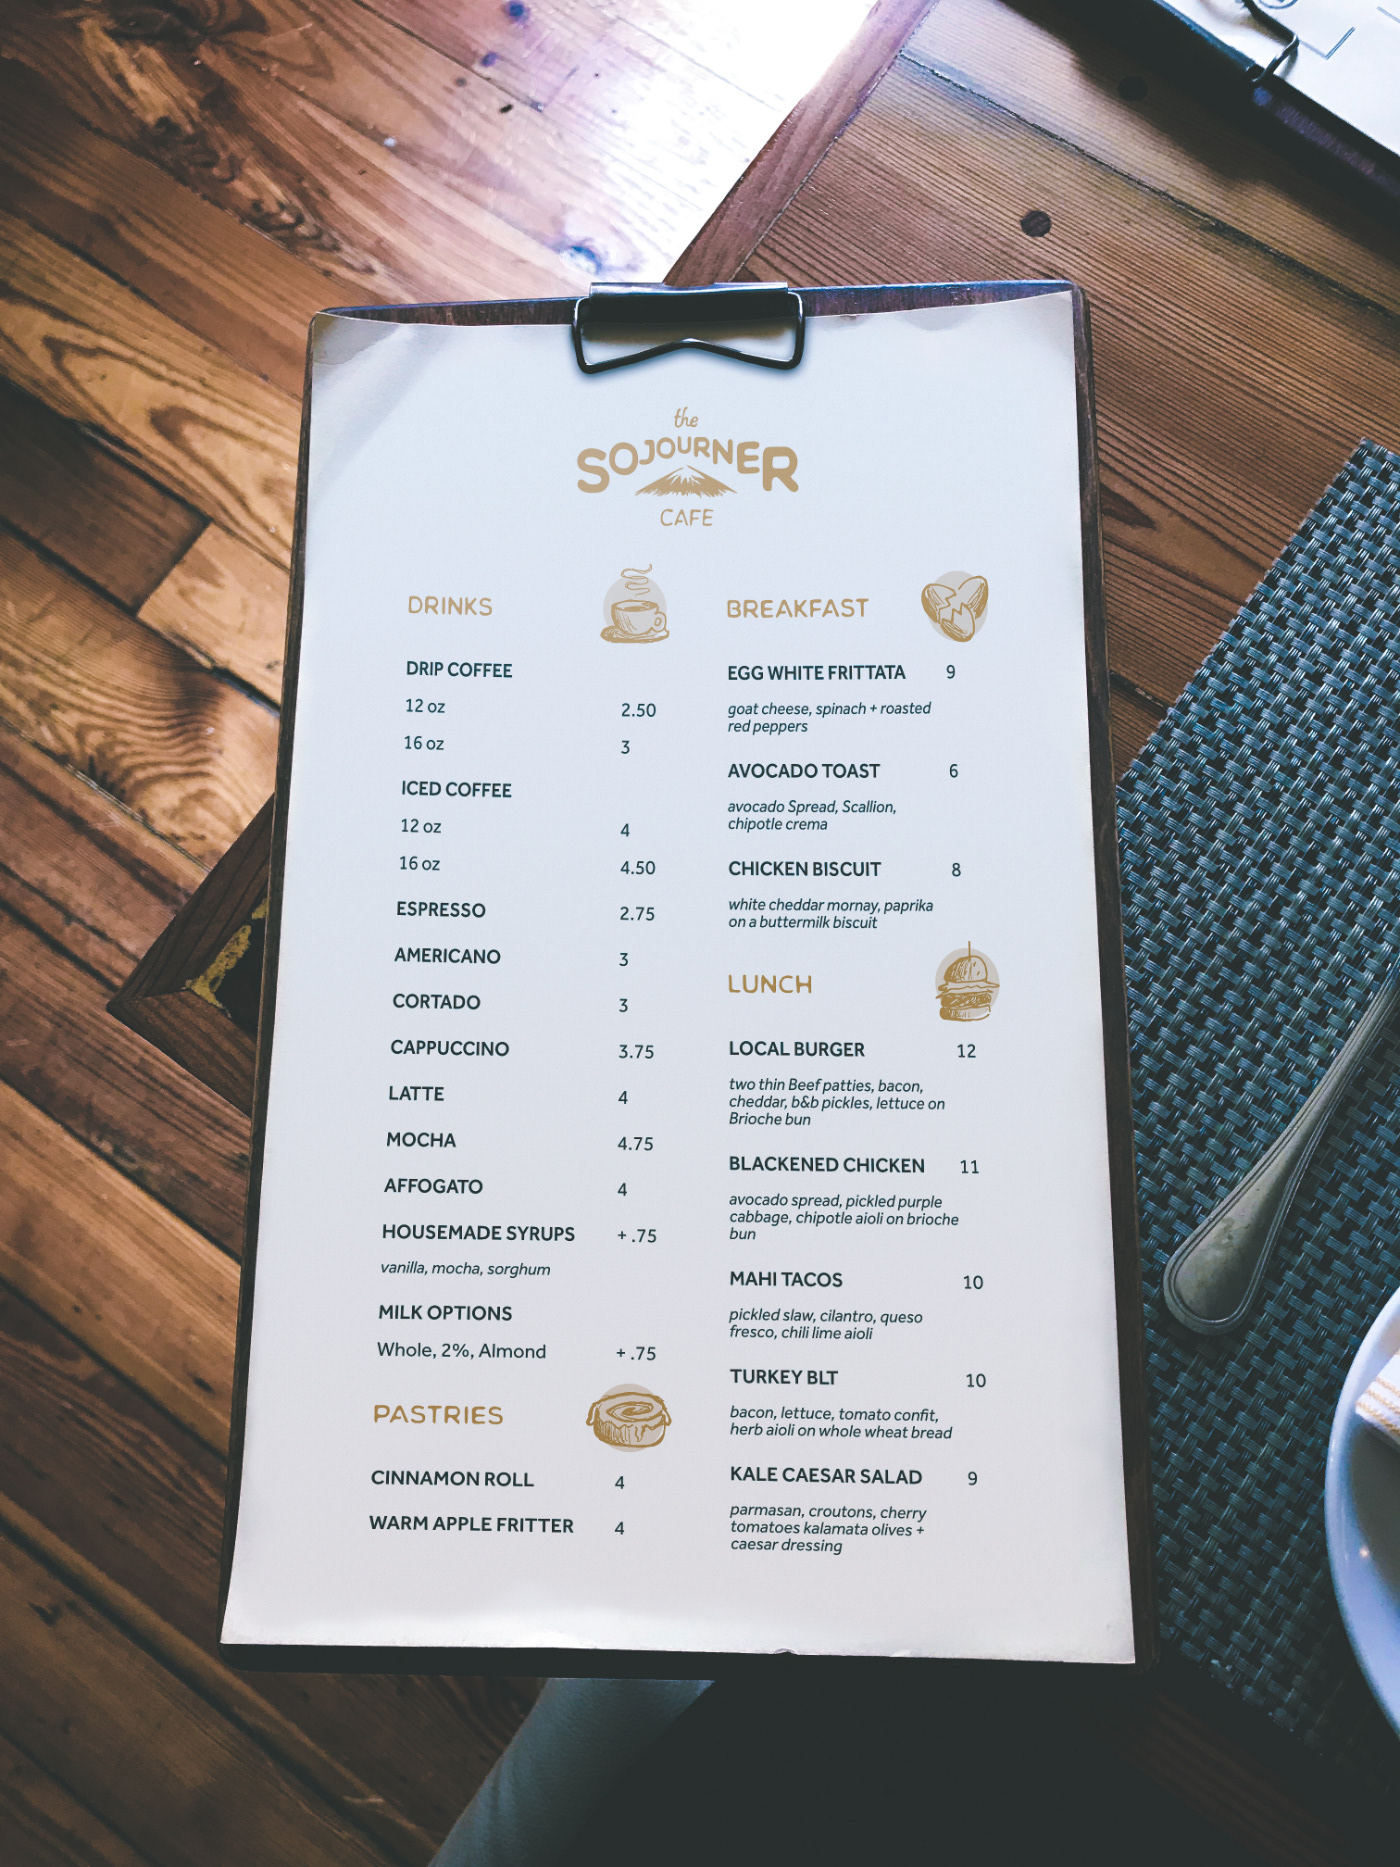 the
SOJOURNER
CAFE
DRINKS
DRIP COFFEE
12 oz 2.50
16 oz 3
ICED COFFEE
12 oz 4
16 oz 4.50
ESPRESSO 2.75
AMERICANO 3
CORTADO 3
CAPPUCCINO 3.75
LATTE 4
MOCHA 4.75
AFFOGATO 4
HOUSEMADE SYRUPS + .75
vanilla, mocha, sorghum
MILK OPTIONS
Whole, 2%, Almond + .75
PASTRIES
CINNAMON ROLL 4
WARM APPLE FRITTER 4
BREAKFAST
EGG WHITE FRITTATA 9
goat cheese, spinach + roasted
red peppers
AVOCADO TOAST 6
avocado Spread, Scallion,
chipotle crema
CHICKEN BISCUIT 8
white cheddar mornay, paprika
on a buttermilk biscuit
LUNCH
LOCAL BURGER 12
two thin Beef patties, bacon,
cheddar, b&b pickles, lettuce on
Brioche bun
BLACKENED CHICKEN 11
avocado spread, pickled purple
cabbage, chipotle aioli on brioche
bun
MAHI TACOS 10
pickled slaw, cilantro, queso
fresco, chili lime aioli
TURKEY BLT 10
bacon, lettuce, tomato confit,
herb aioli on whole wheat bread
KALE CAESAR SALAD 9
parmasan, croutons, cherry
tomatoes kalamata olives +
caesar dressing